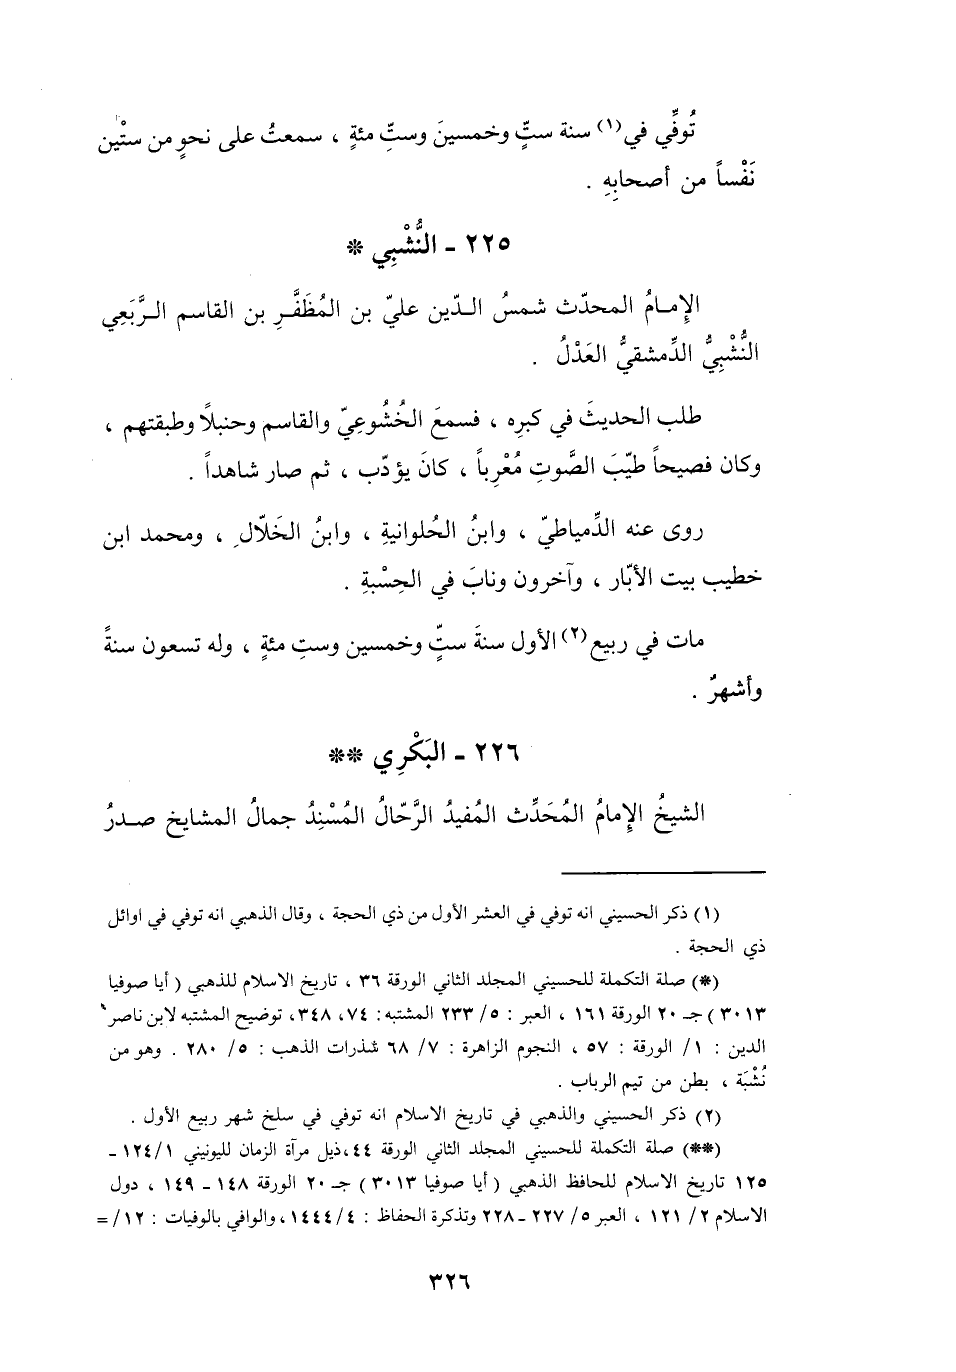 تُوفِّي في(١) سنة ستٍّ وخمسينَ وستِّ مئةٍ ، سمعتُ على نحوٍ من ستْين
نَفْساً من أصحابِهِ .
٢٢٥ - النُّشْبِي *
الإِمـامُ المحدّث شمسُ الـدّين عليّ بن المُظَفَّـرِ بن القاسم الـرَّبَعِي
النُّشْبِيُّ الدِّمشقيُّ العَدْلُ .
طلب الحديثَ في كبرِه ، فسمعَ الخُشُوعِيّ والقاسم وحنبلاً وطبقتهم ،
وكان فصيحاً طيّبَ الصَّوتِ مُعْرِباً ، كانَ يؤدّب ، ثم صار شاهداً .
روى عنه الدِّمياطيّ ، وابنُ الحُلوانيةِ ، وابنُ الخَلّالِ ، ومحمد ابن
خطيب بيت الأبّار ، وآخرون ونابَ في الحِسْبةِ .
مات في ربيع(٢) الأول سنةَ ستٍّ وخمسين وستِ مئةٍ ، وله تسعون سنةً
وأشهرٌ .
٢٢٦ - البَكْرِي **
الشيخُ الإِمامُ المُحَدِّث المُفيدُ الرَّحّالُ المُسْنِدُ جمالُ المشايخ صـدرُ
(١) ذكر الحسيني انه توفي في العشر الأول من ذي الحجة ، وقال الذهبي انه توفي في اوائل
ذي الحجة .
(*) صلة التكملة للحسيني المجلد الثاني الورقة ٣٦ ، تاريخ الاسلام للذهبي ( أيا صوفيا
٣٠١٣ ) جـ ٢٠ الورقة ١٦١ ، العبر : ٥/ ٢٣٣ المشتبه : ٧٤، ٣٤٨، توضيح المشتبه لابن ناصر
الدين : ١/ الورقة : ٥٧ ، النجوم الزاهرة : ٧/ ٦٨ شذرات الذهب : ٥/ ٢٨٠ . وهو من
نُشْبَة ، بطن من تيم الرباب .
(٢) ذكر الحسيني والذهبي في تاريخ الاسلام انه توفي في سلخ شهر ربيع الأول .
(**) صلة التكملة للحسيني المجلد الثاني الورقة ٤٤،ذيل مرآة الزمان لليونيني ١/ ١٢٤ -
١٢٥ تاريخ الاسلام للحافظ الذهبي ( أيا صوفيا ٣٠١٣ ) جـ ٢٠ الورقة ١٤٨ - ١٤٩ ، دول
الاسلام ٢/ ١٢١ ، العبر ٥/ ٢٢٧ -٢٢٨ وتذكرة الحفاظ : ٤/ ١٤٤٤، والوافي بالوفيات : ١٢/ =
٣٢٦